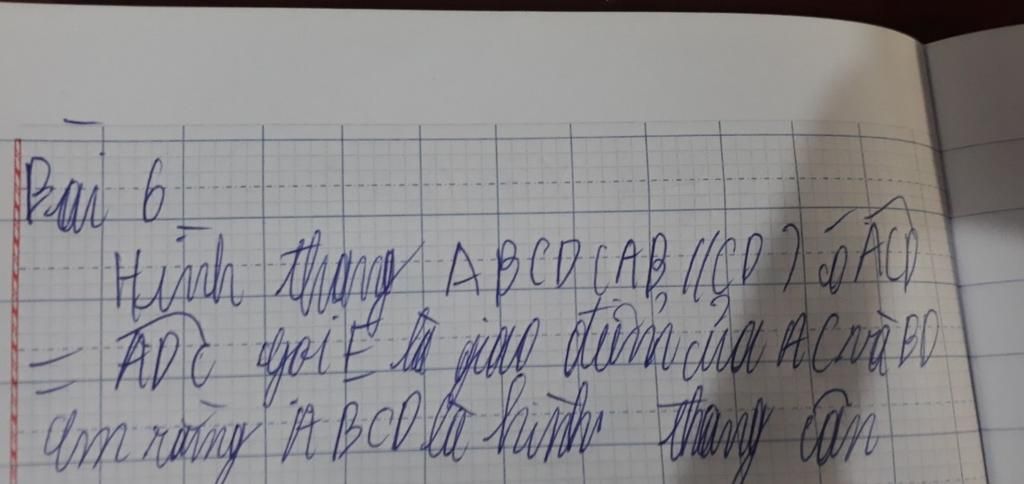 Bài 6
Hình thang ABCD (AB//CD) có ACD
= ADC gọi E là giao điểm của AC và BD
cm rằng ABCD là hình thang cân